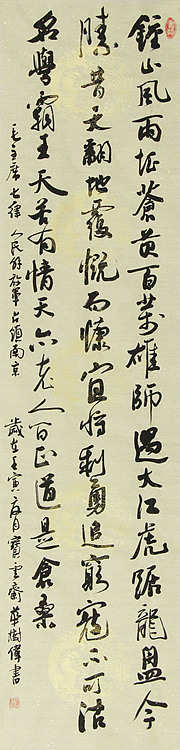 鍾山風雨起蒼黄百萬雄師過大江虎踞龍盤今
勝昔天翻地覆慨而慷宜将剩勇追窮寇不可沽
名學霸王天若有情天亦老人间正道是滄桑
毛主席七律人民解放軍占領南京 歲在壬寅月寶雲齋華樹偉書